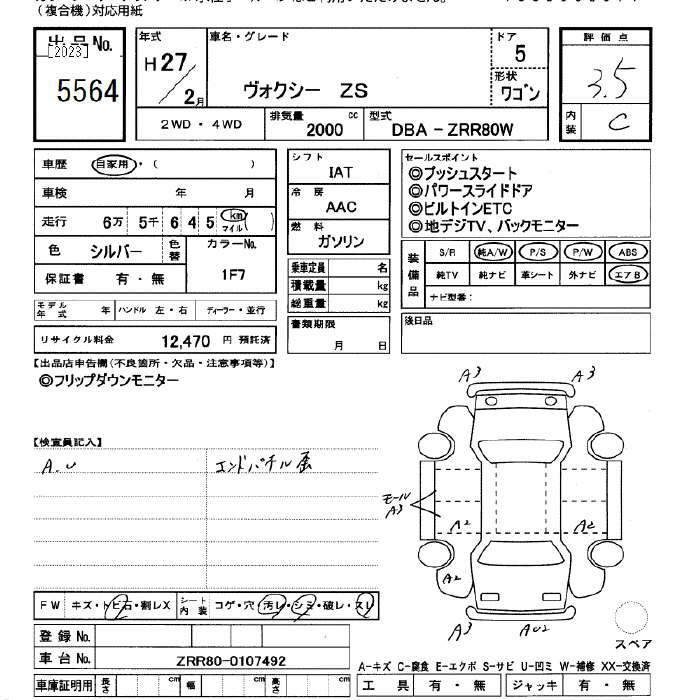 (複合機)対応用紙
出品No.
[2023]
5564
年式
H27/2月
車名・グレード
ヴォクシー ZS
ドア
5
形状
ワゴン
2WD・4WD
排気量
2000 cc
型式
DBA-ZRR80W
評価点
3.5
内装
C
車歴 自家用・( )
車検 年 月
走行 6万 5千 6 4 5 km マイル ( )
色 シルバー 色替 カラーNo.
1F7
保証書 有・無
モデル年式 年 ハンドル 左・右 ディーラー・並行
リサイクル料金 12,470 円 預託済
シフト
IAT
冷房
AAC
燃料
ガソリン
乗車定員 名
積載量 kg
総重量 kg
書類期限
月 日
セールスポイント
◎プッシュスタート
◎パワースライドドア
◎ビルトインETC
◎地デジTV、バックモニター
装備品
S/R 純A/W P/S P/W ABS
純TV 純ナビ 革シート 外ナビ エアB
ナビ型番:
後日品
【出品店申告欄(不良箇所・欠品・注意事項等)】
◎フリップダウンモニター
【検査員記入】
A.U
FW キズ・トビ石・割レX シート内装 コゲ・穴・汚レ・シミ・破レ・スレ
登録No.
車台No. ZRR80-0107492
車庫証明用 長さ cm 幅 cm 高さ cm
A3 A3
モール
A3
A2 A2
A2
A3 AU2
スペア
A-キズ C-腐食 E-エクボ S-サビ U-凹ミ W-補修 XX-交換済
工具 有・無 ジャッキ 有・無